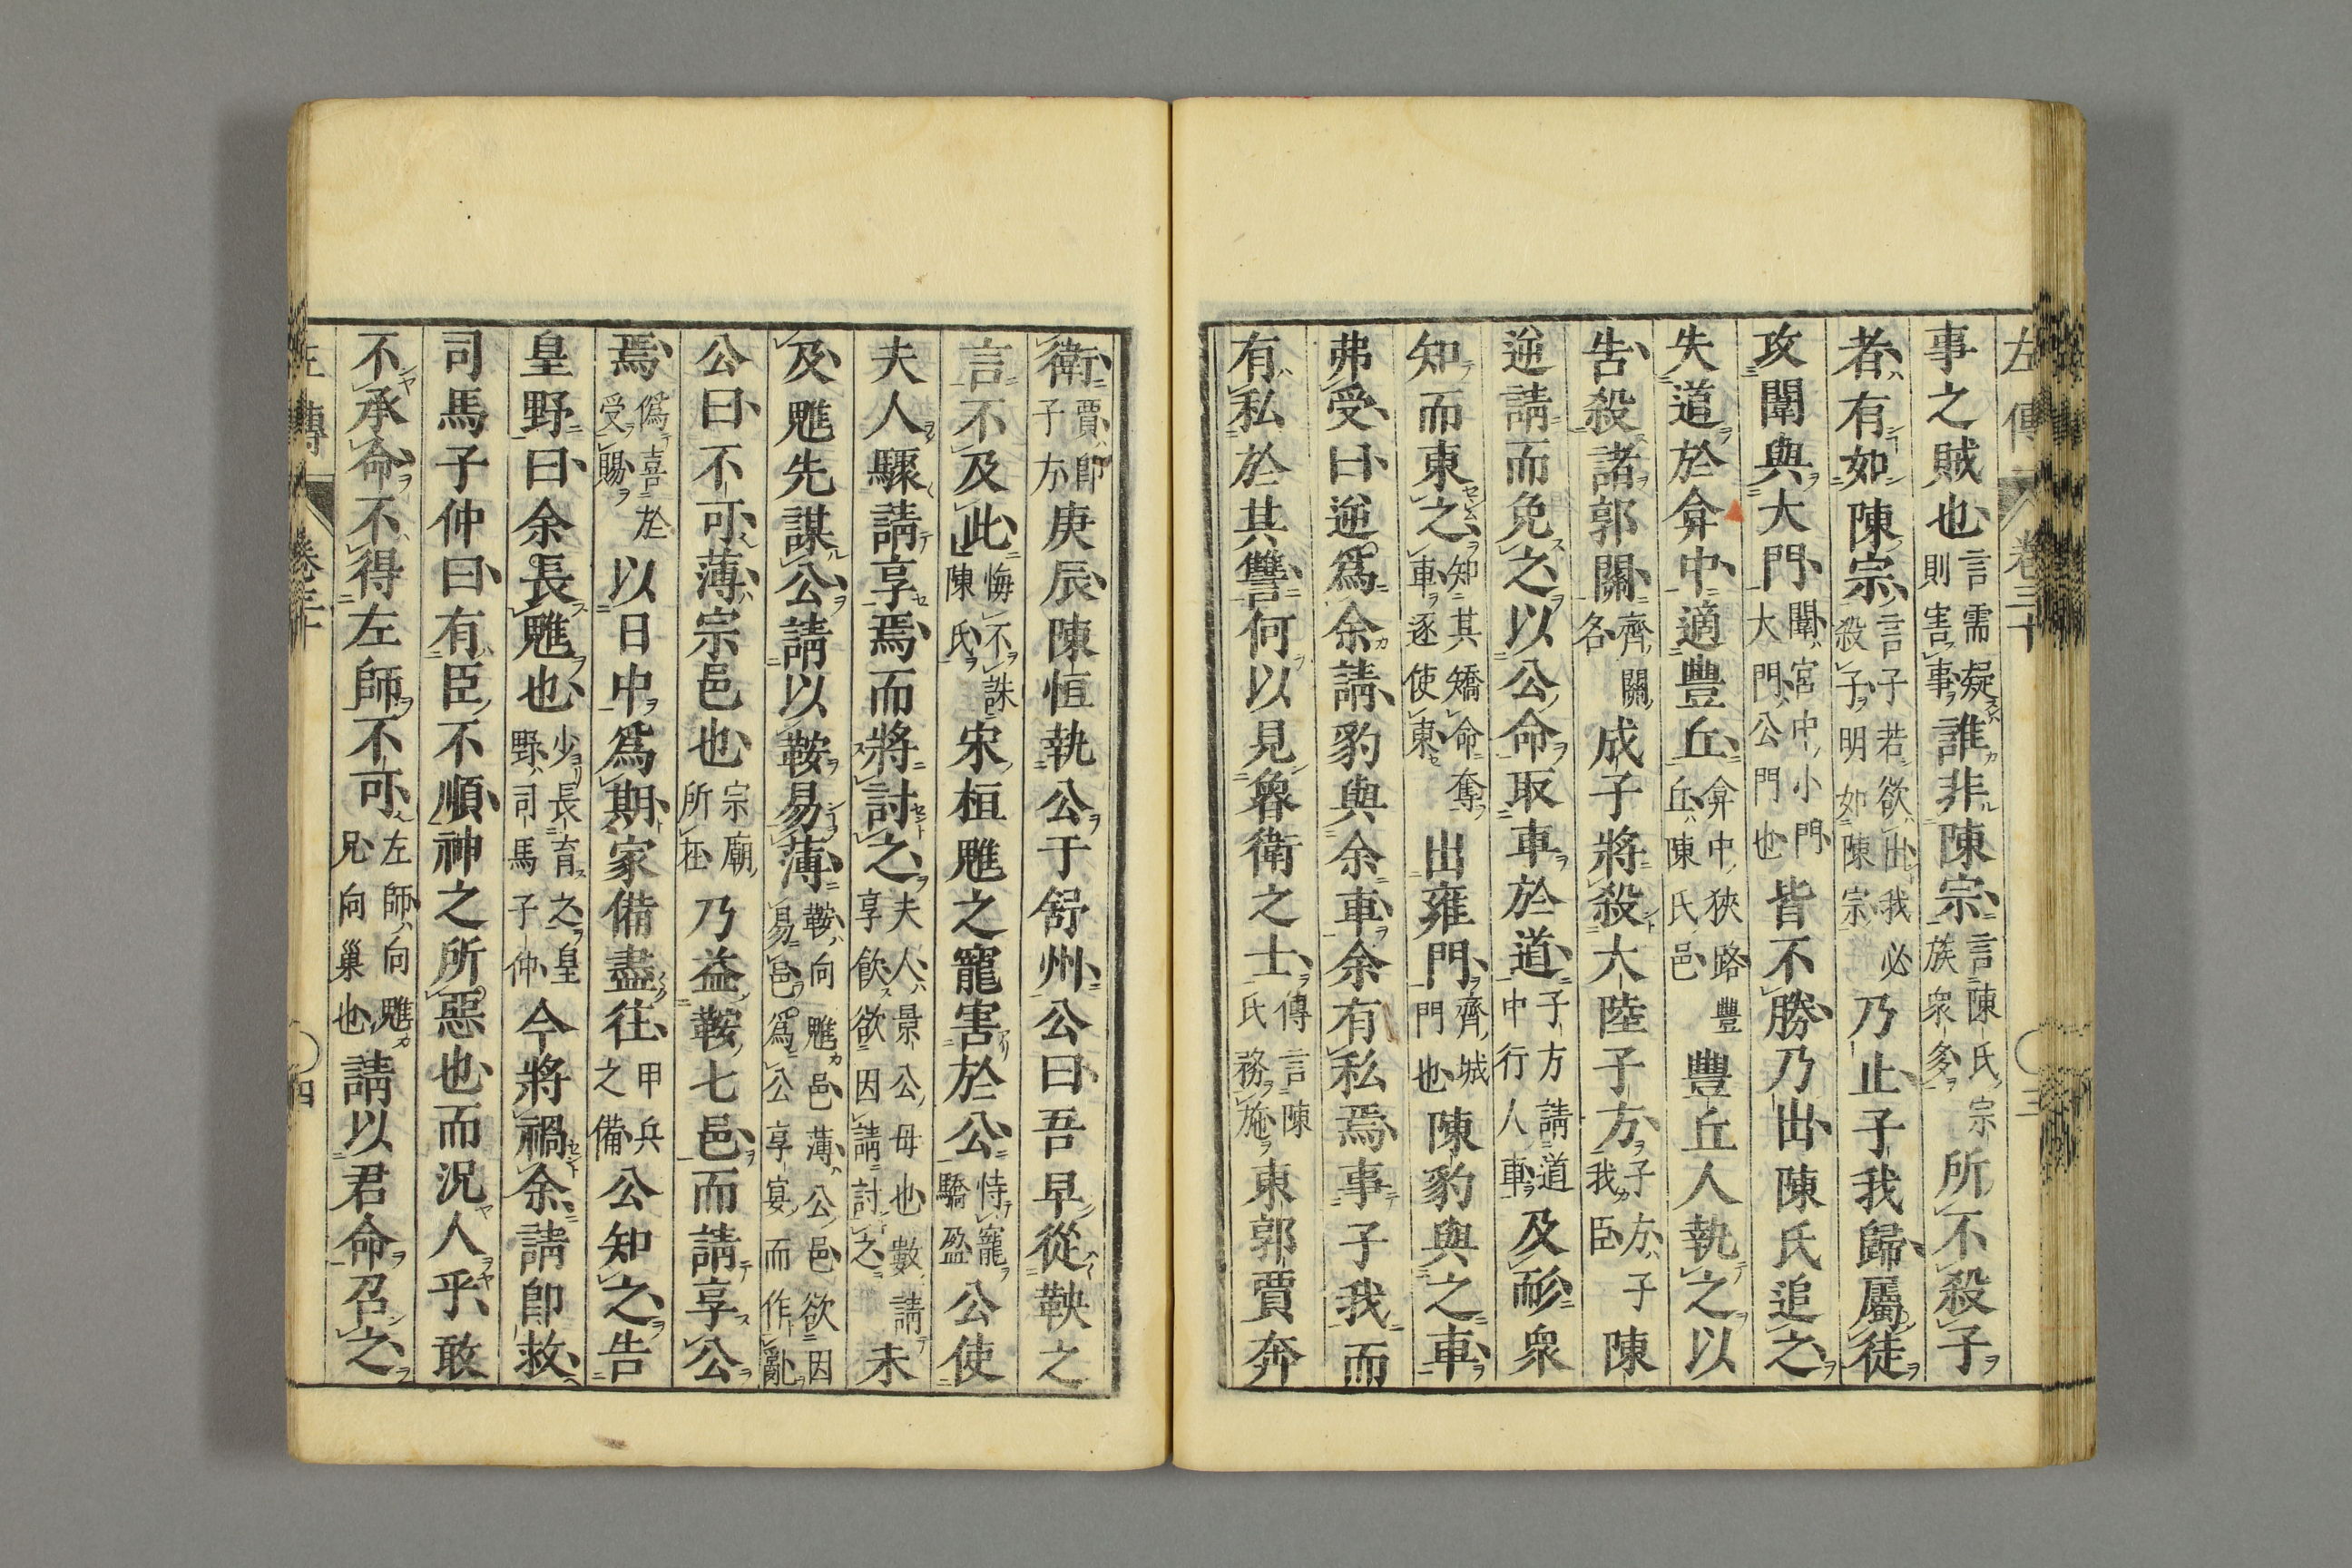 左傳 卷三十 三
事之賊也言需疑則害事誰非陳宗言陳氏宗族衆多所不殺子
者有如陳宗言子若欲出我必殺子明如陳宗乃止子我歸屬徒
攻闈與大門闈宮中小門大門公門也皆不勝乃出陳氏追之
失道於弇中適豐丘弇中狹路豐丘陳氏邑豐丘人執之以
告殺諸郭關齊關名成子將殺大陸子方子方子我臣陳
逆請而免之以公命取車於道子方請道中行人車及耏衆
知而東之知其矯命奪車逐使東出雍門齊城門也陳豹與之車
弗受曰逆爲余請豹與余車余有私焉事子我而
有私於其讐何以見魯衛之士傳言陳氏務施東郭賈奔
衛賈即子方庚辰陳恒執公于舒州公曰吾早從鞅之
言不及此悔不誅陳氏宋桓魋之寵害於公恃寵驕盈公使
夫人驟請享焉而將討之夫人景公母也數請享飲欲因請討之未
及魋先謀公請以鞍易薄鞍向魋邑薄公邑欲因易邑爲公享宴而作亂
公曰不可薄宗邑也宗廟所在乃益鞍七邑而請享公
焉僞喜於受賜以日中爲期家備盡往甲兵之備公知之告
皇野曰余長魋也少長育之皇野司馬子仲今將禍余請即救
司馬子仲曰有臣不順神之所惡也而況人乎敢
不承命不得左師不可左師向魋兄向巢也請以君命召之
左傳 卷三十 四